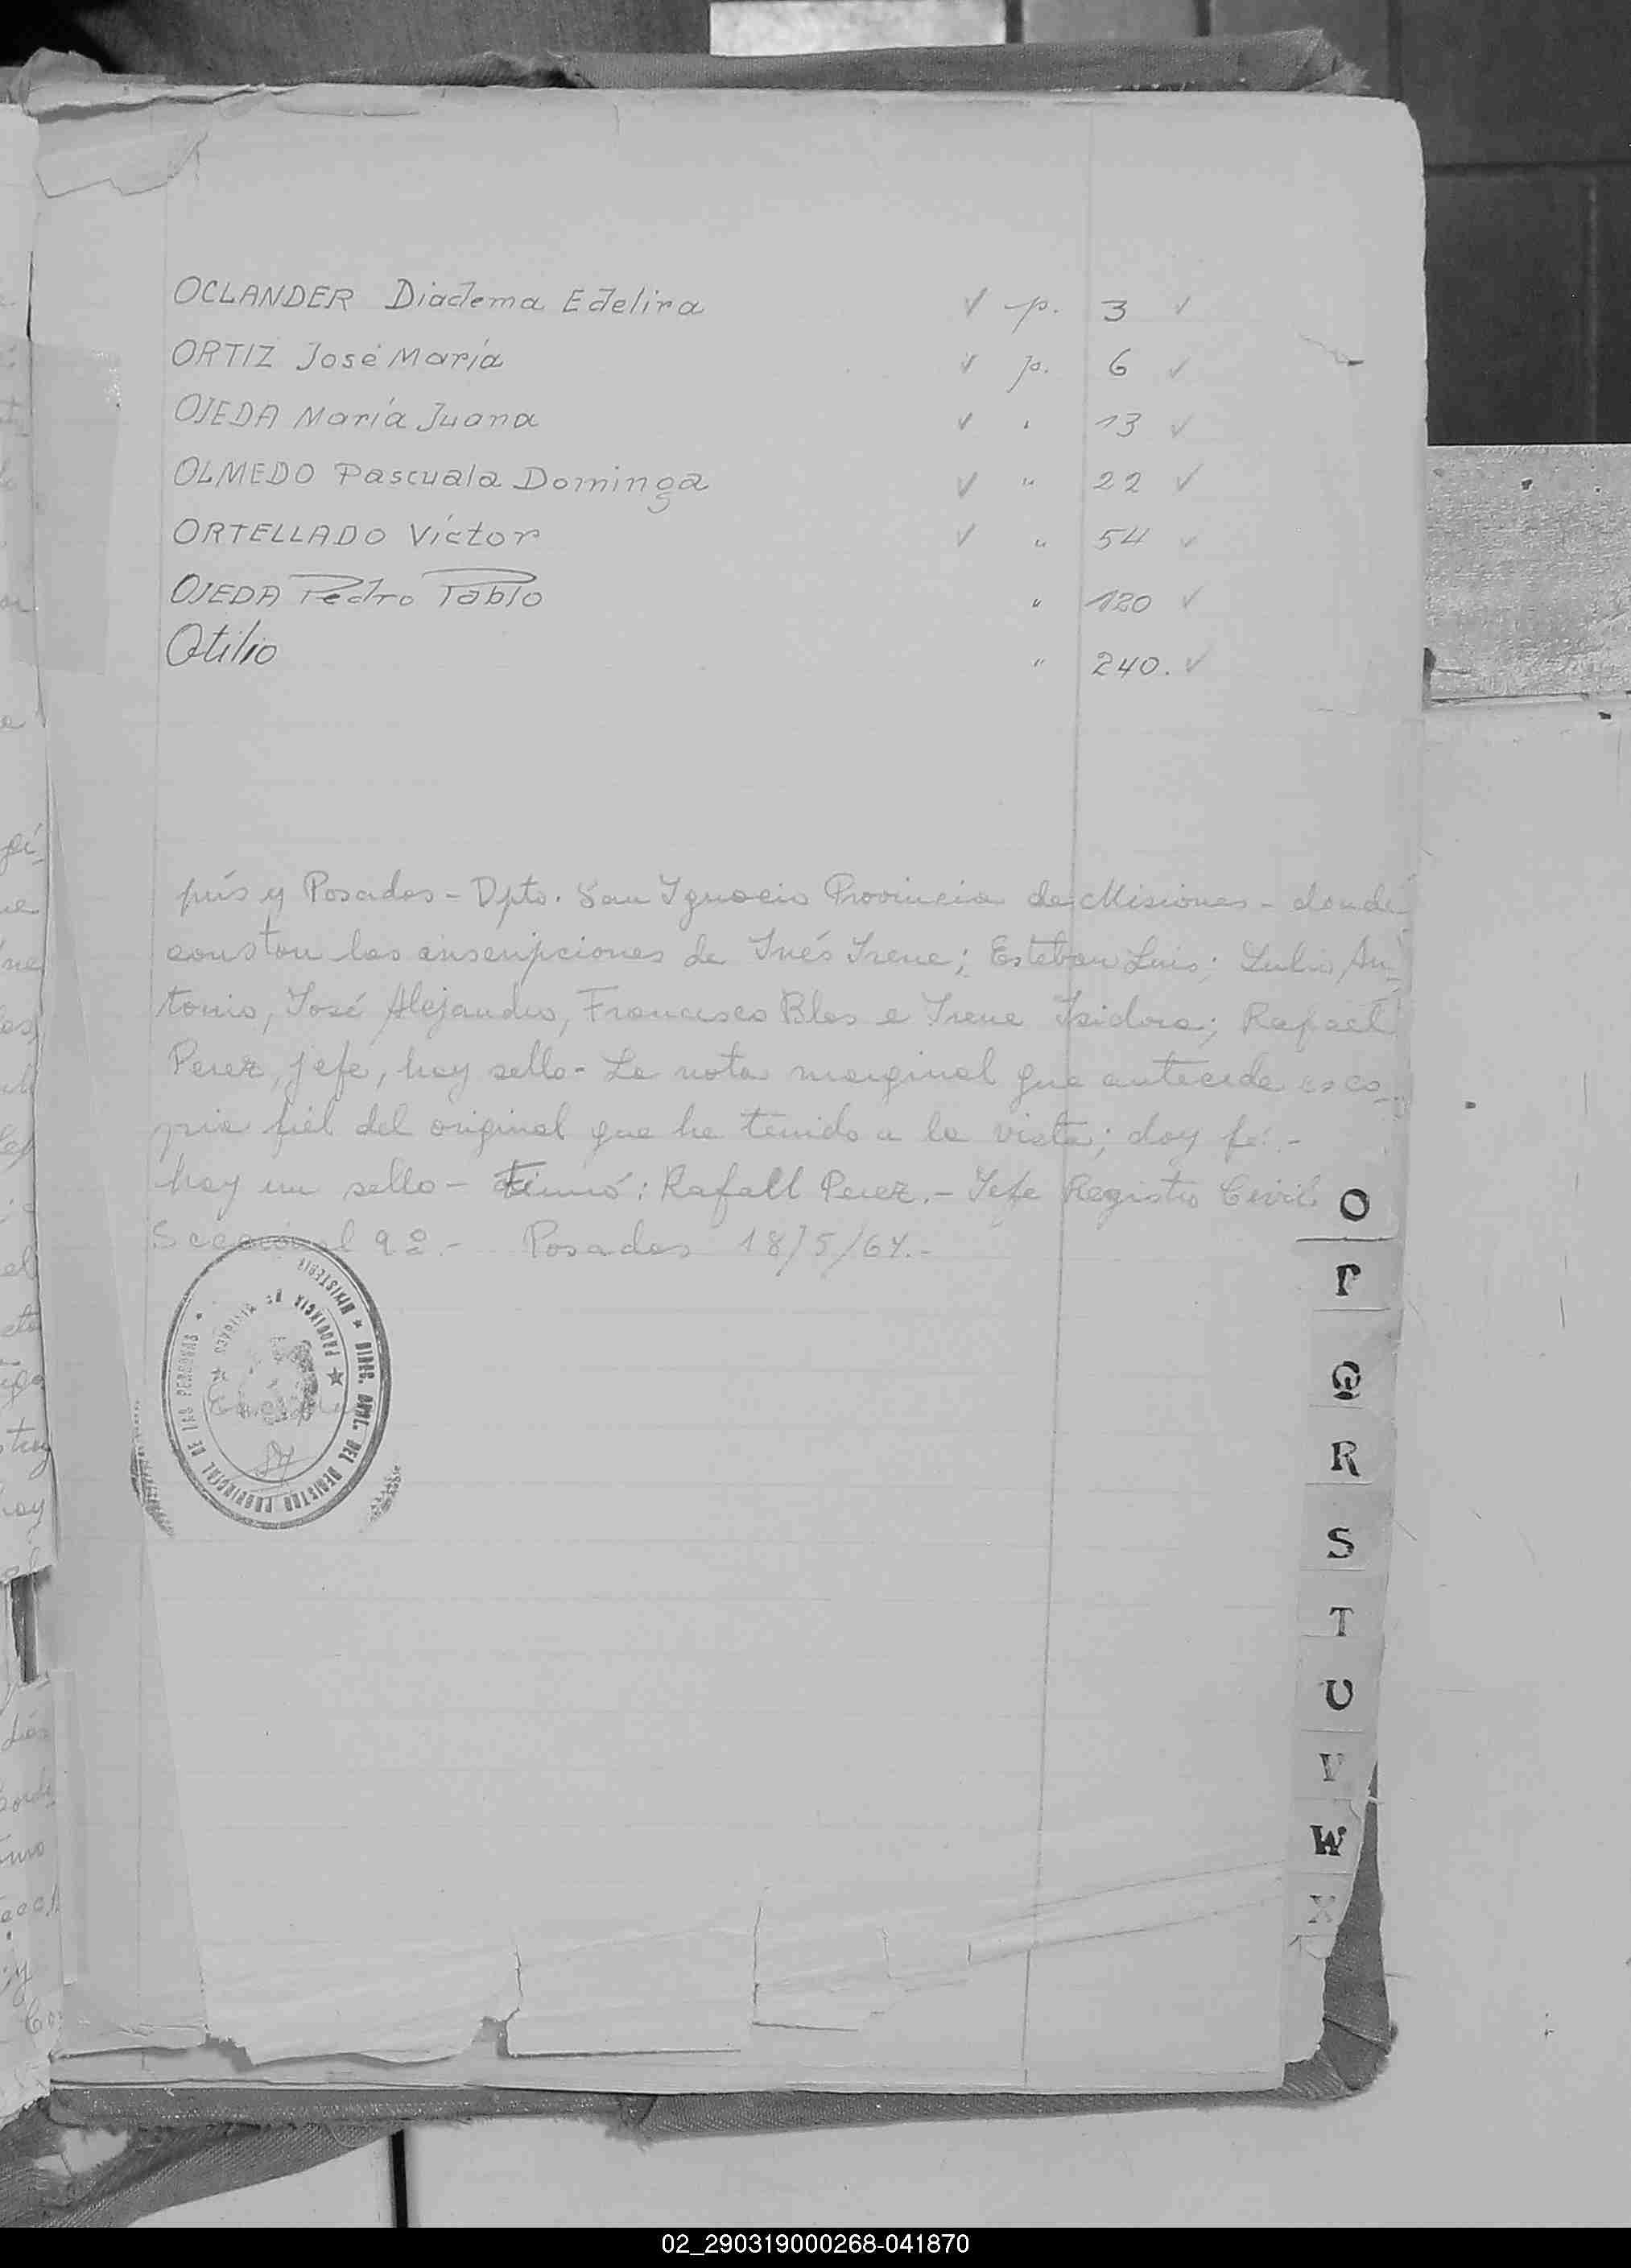 OCLANDER Diadema Edelira ✓ p. 3 ✓
ORTIZ José María ✓ p. 6 ✓
OJEDA María Juana ✓ " 13 ✓
OLMEDO Pascuala Dominga ✓ " 22 ✓
ORTELLADO Víctor ✓ " 54 ✓
OJEDA Pedro Pablo " 120 ✓
Otilio " 240. ✓
pús y Posadas - Dpto. San Ignacio Provincia de Misiones - donde
constan las inscripciones de Inés Irene; Esteban Luis; Julio An-
tonio, José Alejandro, Francisco Blas e Irene Isidora; Rafael
Perez, jefe, hay sello - La nota marginal que antecede es co-
pia fiel del original que he tenido a la vista; doy fé. -
hay un sello - Firmó: Rafall Perez. - Jefe Registro Civil
Seccional 9º. - Posadas 18/5/64. -
MINISTERIO * DIREC. GRAL. DEL REGISTRO PROVINCIAL DE LAS PERSONAS *
PROVINCIA DE MISIONES
O
P
Q
R
S
T
U
V
W
X
02_290319000268-041870